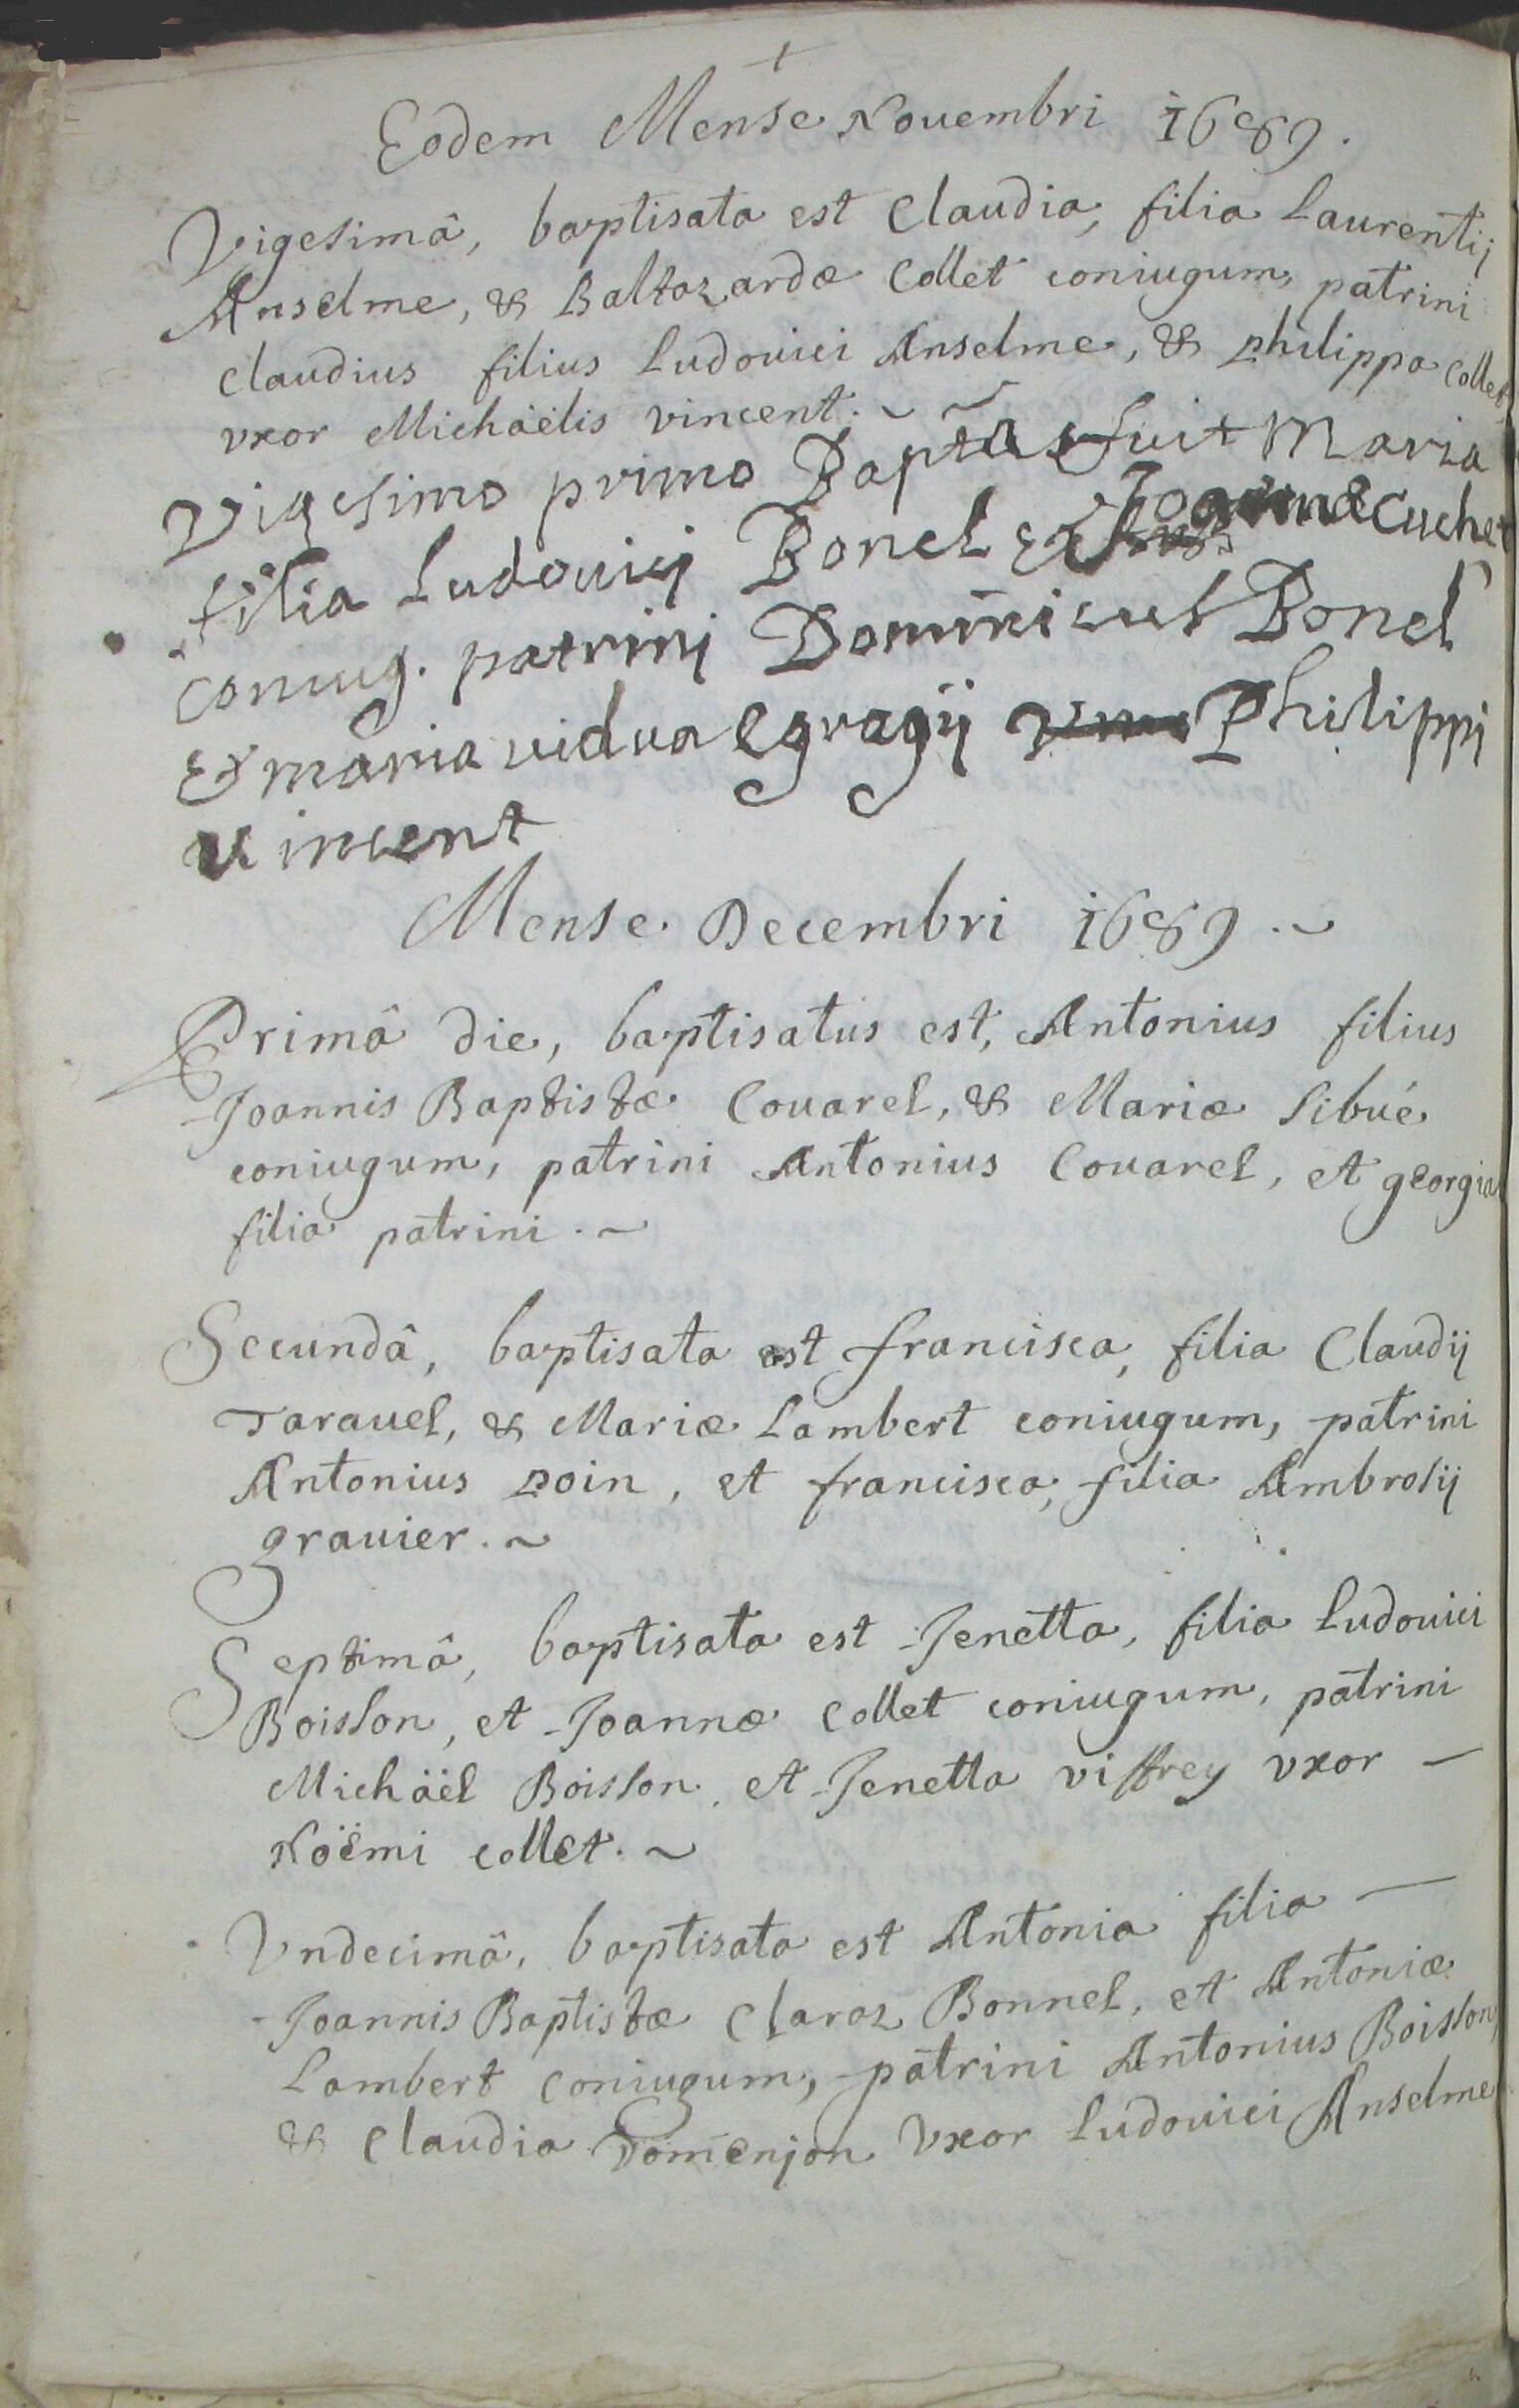 Eodem Mense Nouembri 1689.
Vigesimâ, baptisata est Claudia, filia Laurentij
Anselme, & Baltazardæ Collet coniugum, patrini
Claudius filius Ludouici Anselme, & philippa Collet
vxor Michäëlis vincent. ~
Vigesimo primo Bapta fuit Maria
filia Ludouicj Bonel & Cuchet
coniug. patrinj Dominicus Bonel
& maria vidua Egregij Philippj
vincent
Mense Decembri 1689. ~
Primâ die, baptisatus est, Antonius filius
Joannis Baptistæ Couarel, & Mariæ Sibué
coniugum, patrini Antonius Couarel, et georgia
filia patrini. ~
Secundâ, baptisata est francisca, filia Claudij
Tarauel, & Mariæ Lambert coniugum, patrini
Antonius poin, et francisca, filia Ambrosij
grauier. ~
Septimâ, baptisata est Jenetta, filia Ludouici
Boisson, et Joannæ Collet coniugum, patrini
Michäël Boisson, et Jenetta viffrey vxor —
Nöëmi collet. ~
Vndecimâ, baptisata est Antonia filia —
Joannis Baptistæ Claraz Bonnel, et Antoniæ
Lambert coniugum, patrini Antonius Boisson,
& Claudia Domenjon Vxor Ludouici Anselme